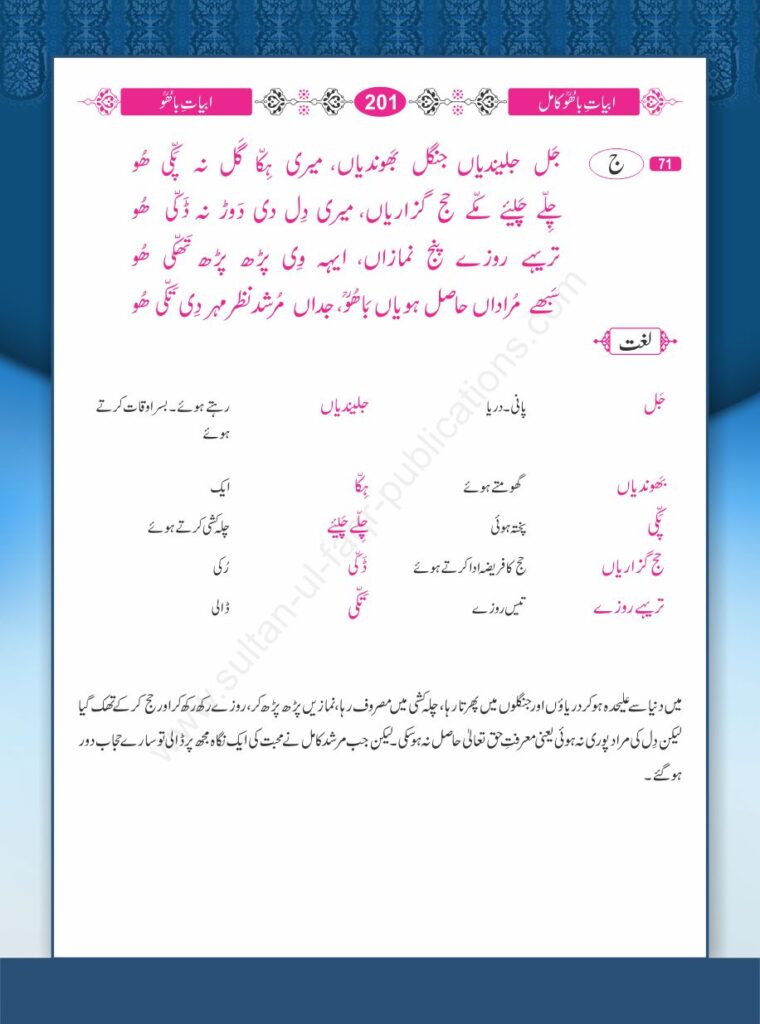 ابیاتِ باھُوؒ کامل 201 ابیاتِ باھُوؒ
71 ج جَل جلیندیاں جنگل بھَوندیاں، میری ہِکّا گَل نہ پَکّی ھُو
چِلّے چَلیئے مکّے حج گزاریاں، میری دِل دی دَوڑ نہ ڈَکّی ھُو
تریہے روزے پنج نمازاں، ایہہ وِی پڑھ پڑھ تھَکّی ھُو
سَبھے مُراداں حاصل ہویاں بَاھُوؒ، جداں مُرشد نظر مہر دِی تَکّی ھُو
لغت
جَل پانی۔ دریا جلیندیاں رہتے ہوئے۔ بسر اوقات کرتے
ہوئے
بھَوندیاں گھومتے ہوئے ہِکّا ایک
پَکّی پختہ ہوئی چِلّے چَلیئے چلہ کشی کرتے ہوئے
حج گزاریاں حج کا فریضہ ادا کرتے ہوئے ڈَکّی رُکی
تریہے روزے تیس روزے تَکّی ڈالی
میں دنیا سے علیحدہ ہو کر دریاؤں اور جنگلوں میں پھرتا رہا، چلہ کشی میں مصروف رہا، نمازیں پڑھ پڑھ کر، روزے رکھ رکھ کر اور حج کر کے تھک گیا
لیکن دِل کی مراد پوری نہ ہوئی یعنی معرفتِ حق تعالیٰ حاصل نہ ہو سکی۔ لیکن جب مرشد کامل نے محبت کی ایک نگاہ مجھ پر ڈالی تو سارے حجاب دور
ہو گئے۔
www.sultan-ul-faqr-publications.com